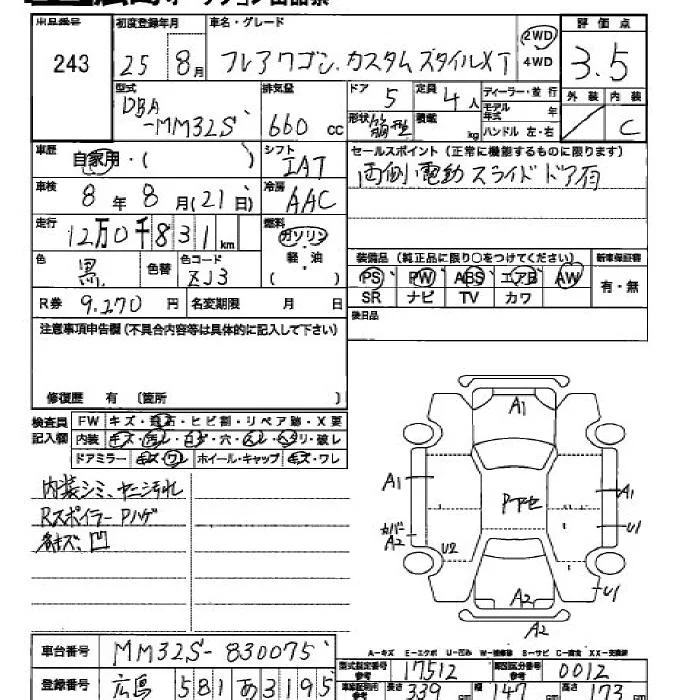 出品番号 243
初度登録年月 25 8月
車名・グレード フレアワゴン.カスタムスタイルXT
2WD 4WD
評価点 3.5
外装 内装 C
型式 DBA -MM32S
排気量 660 cc
ドア 5 形状 箱型
定員 4人 積載 kg
ディーラー・並行
モデル年式 年
ハンドル 左・右
車歴 自家用・( )
シフト IAT
車検 8年8月(21日)
冷房 AAC
走行 12万0千831km
燃料 ガソリン 軽・油 ( )
色 黒 色替 色コード ZJ3
R券 9.270円 名変期限 月 日
セールスポイント(正常に機能するものに限ります)
両側電動スライドドア有
装備品(純正品に限り○をつけてください) 新車保証書
PS PW ABS エアB AW 有・無
SR ナビ TV カワ
後日品
注意事項申告欄(不具合内容等は具体的に記入して下さい)
修復歴 有 〔箇所 〕
検査員記入欄
FW キズ・飛石・ヒビ割・リペア跡・X要
内装
ドアミラー キズ・ワレ ホイール・キャップ キズ・ワレ
内装シミ、ヤニ汚れ
Rスポイラー Pハゲ
各キズ、凹
A1
A1
A1
カバーA2
U2
U1
U1
A2
A2
A-キズ E-エクボ U-凹み
車台番号 MM32S-830075
型式指定番号参考 17512
類別区分番号参考 0012
登録番号 広島 581 あ 3195
長さ 339 cm 幅 147 cm 高さ 173 cm